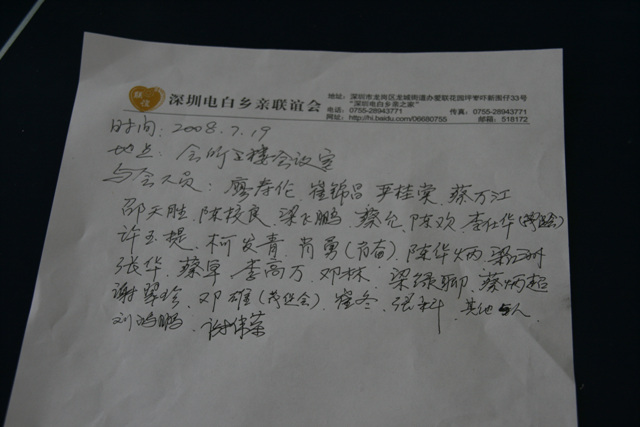 联谊
深圳电白乡亲联谊会
地址：深圳市龙岗区龙城街道办爱联花园坪岺吓新围仔33号
“深圳电白乡亲之家”
电话：0755-28943771 传真：0755-28943771
网址：http://hi.baidu.com/06680755 邮编：518172
时间：2008.7.19
地点：会所三楼会议室
与会人员：廖寿伦 崔锦昌 严桂荣、蔡万江
邵天胜、陈校良、梁飞鹏、蔡允、陈欢、李仕华
许玉提、柯发青、肖勇(肖奋)、陈华炳
张华、蔡军、李高万、邓林、梁绿聊、蔡炳超
谢翠珍、邓雄(茂促会)、崔冬、张科、其他 人
刘鸿鹏、谢伟荣